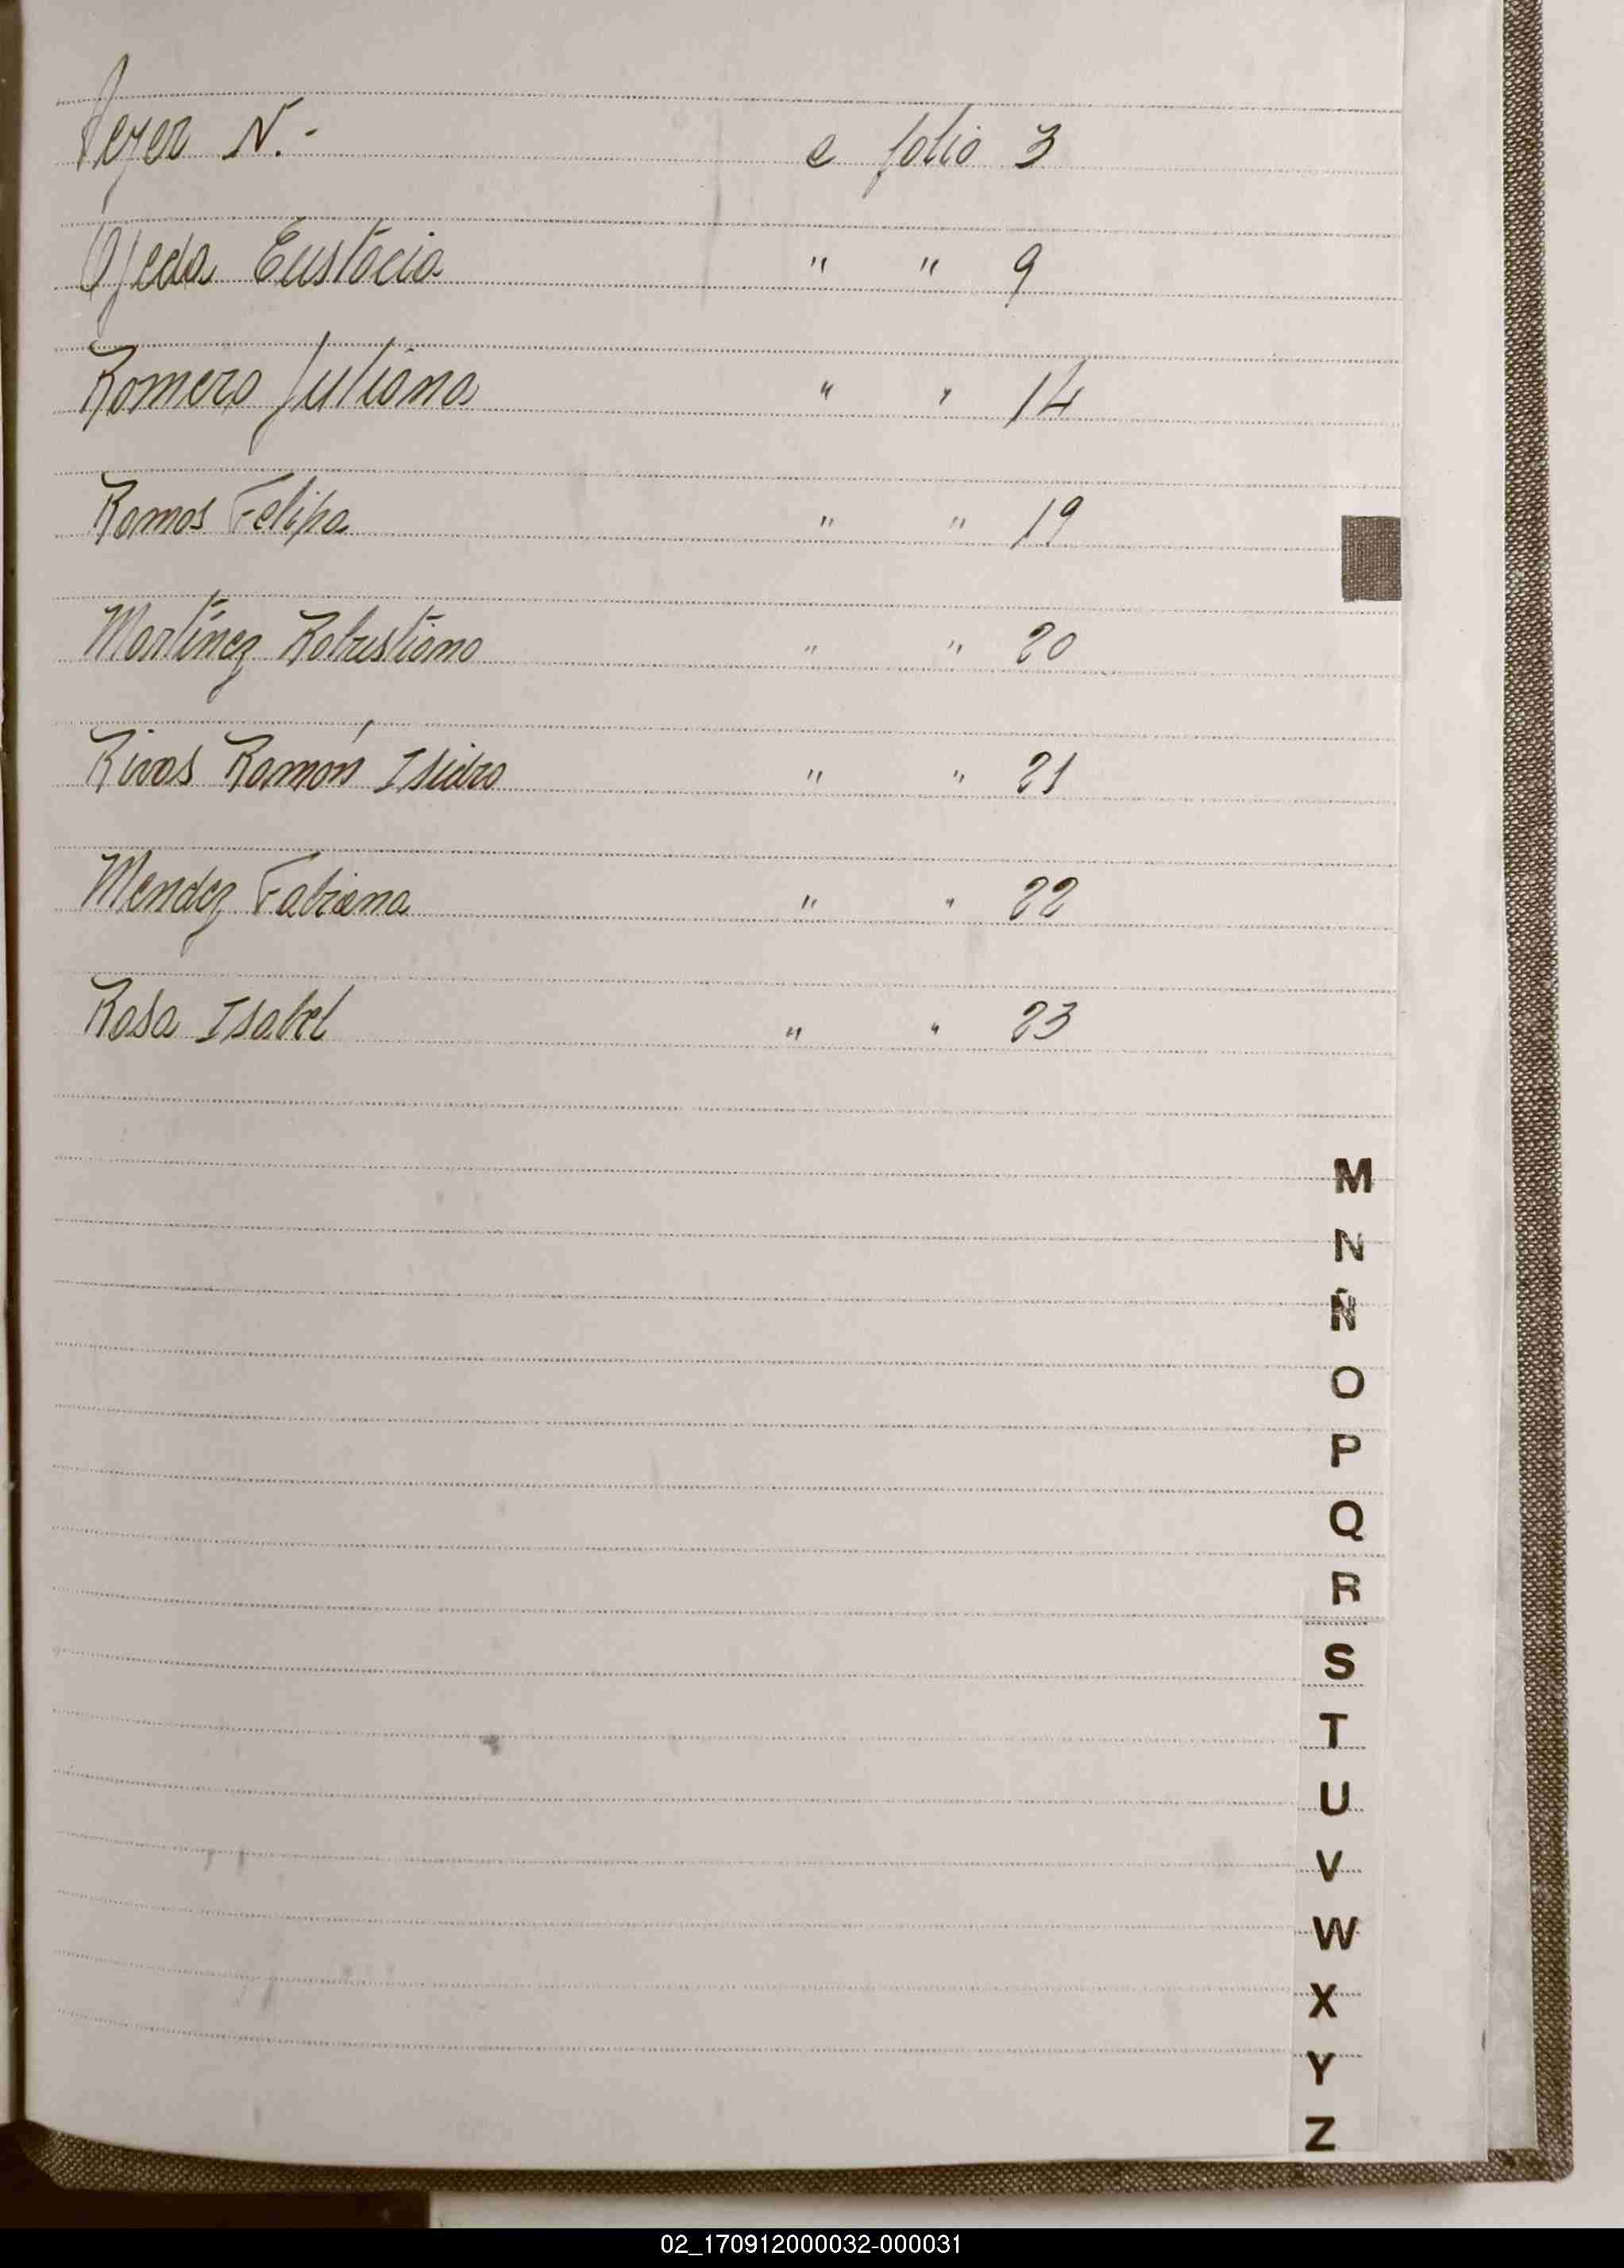 N.- e folio 3
Ojeda Eustacia " " 9
Romero Juliana " " 14
Ramos Felipa " " 19
Martínez Robustiano " " 20
Rivas Ramón Isidro " " 21
Mendez Fabiana " " 22
Rosa Isabel " " 23
M
N
Ñ
O
P
Q
R
S
T
U
V
W
X
Y
Z
02_170912000032-000031